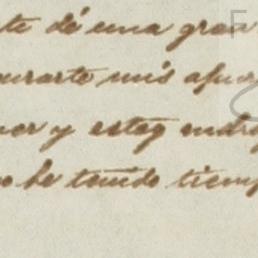 te dé una gran
urarte mis apur
or y estoy
o he tenido tiemp